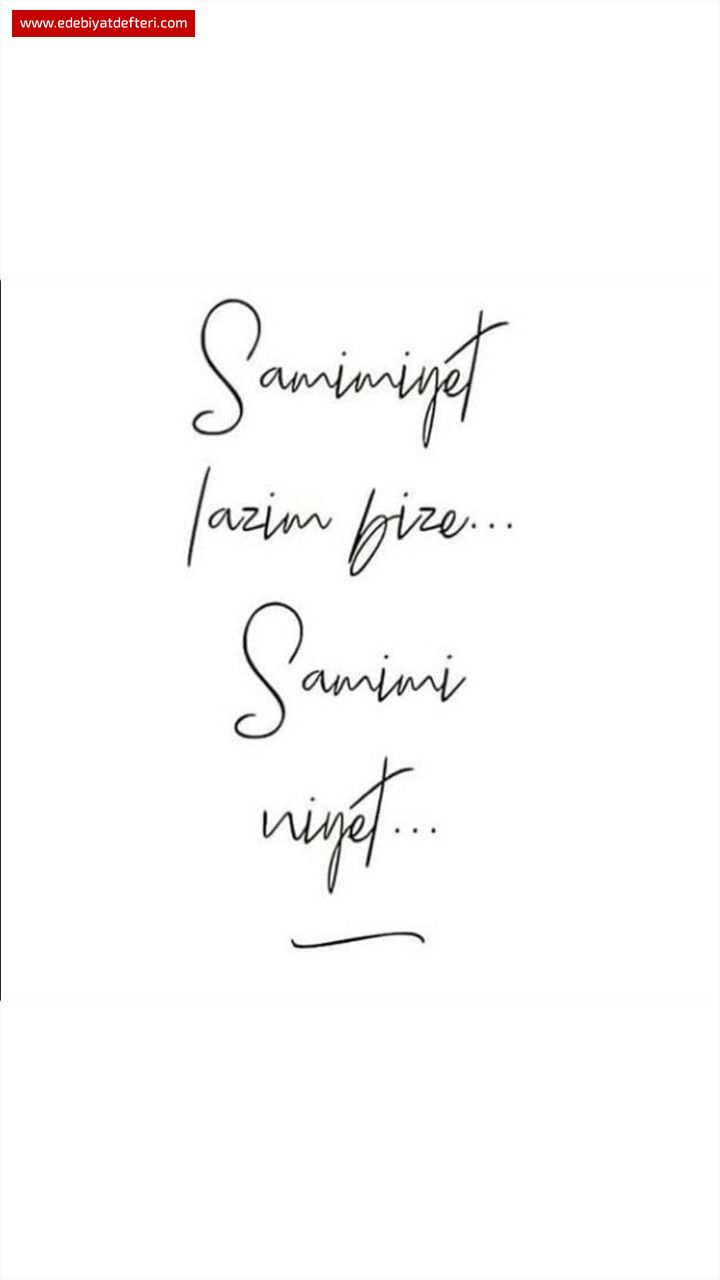 www.edebiyatdefteri.com
Samimiyet
lazim bize...
Samimi
niyet...